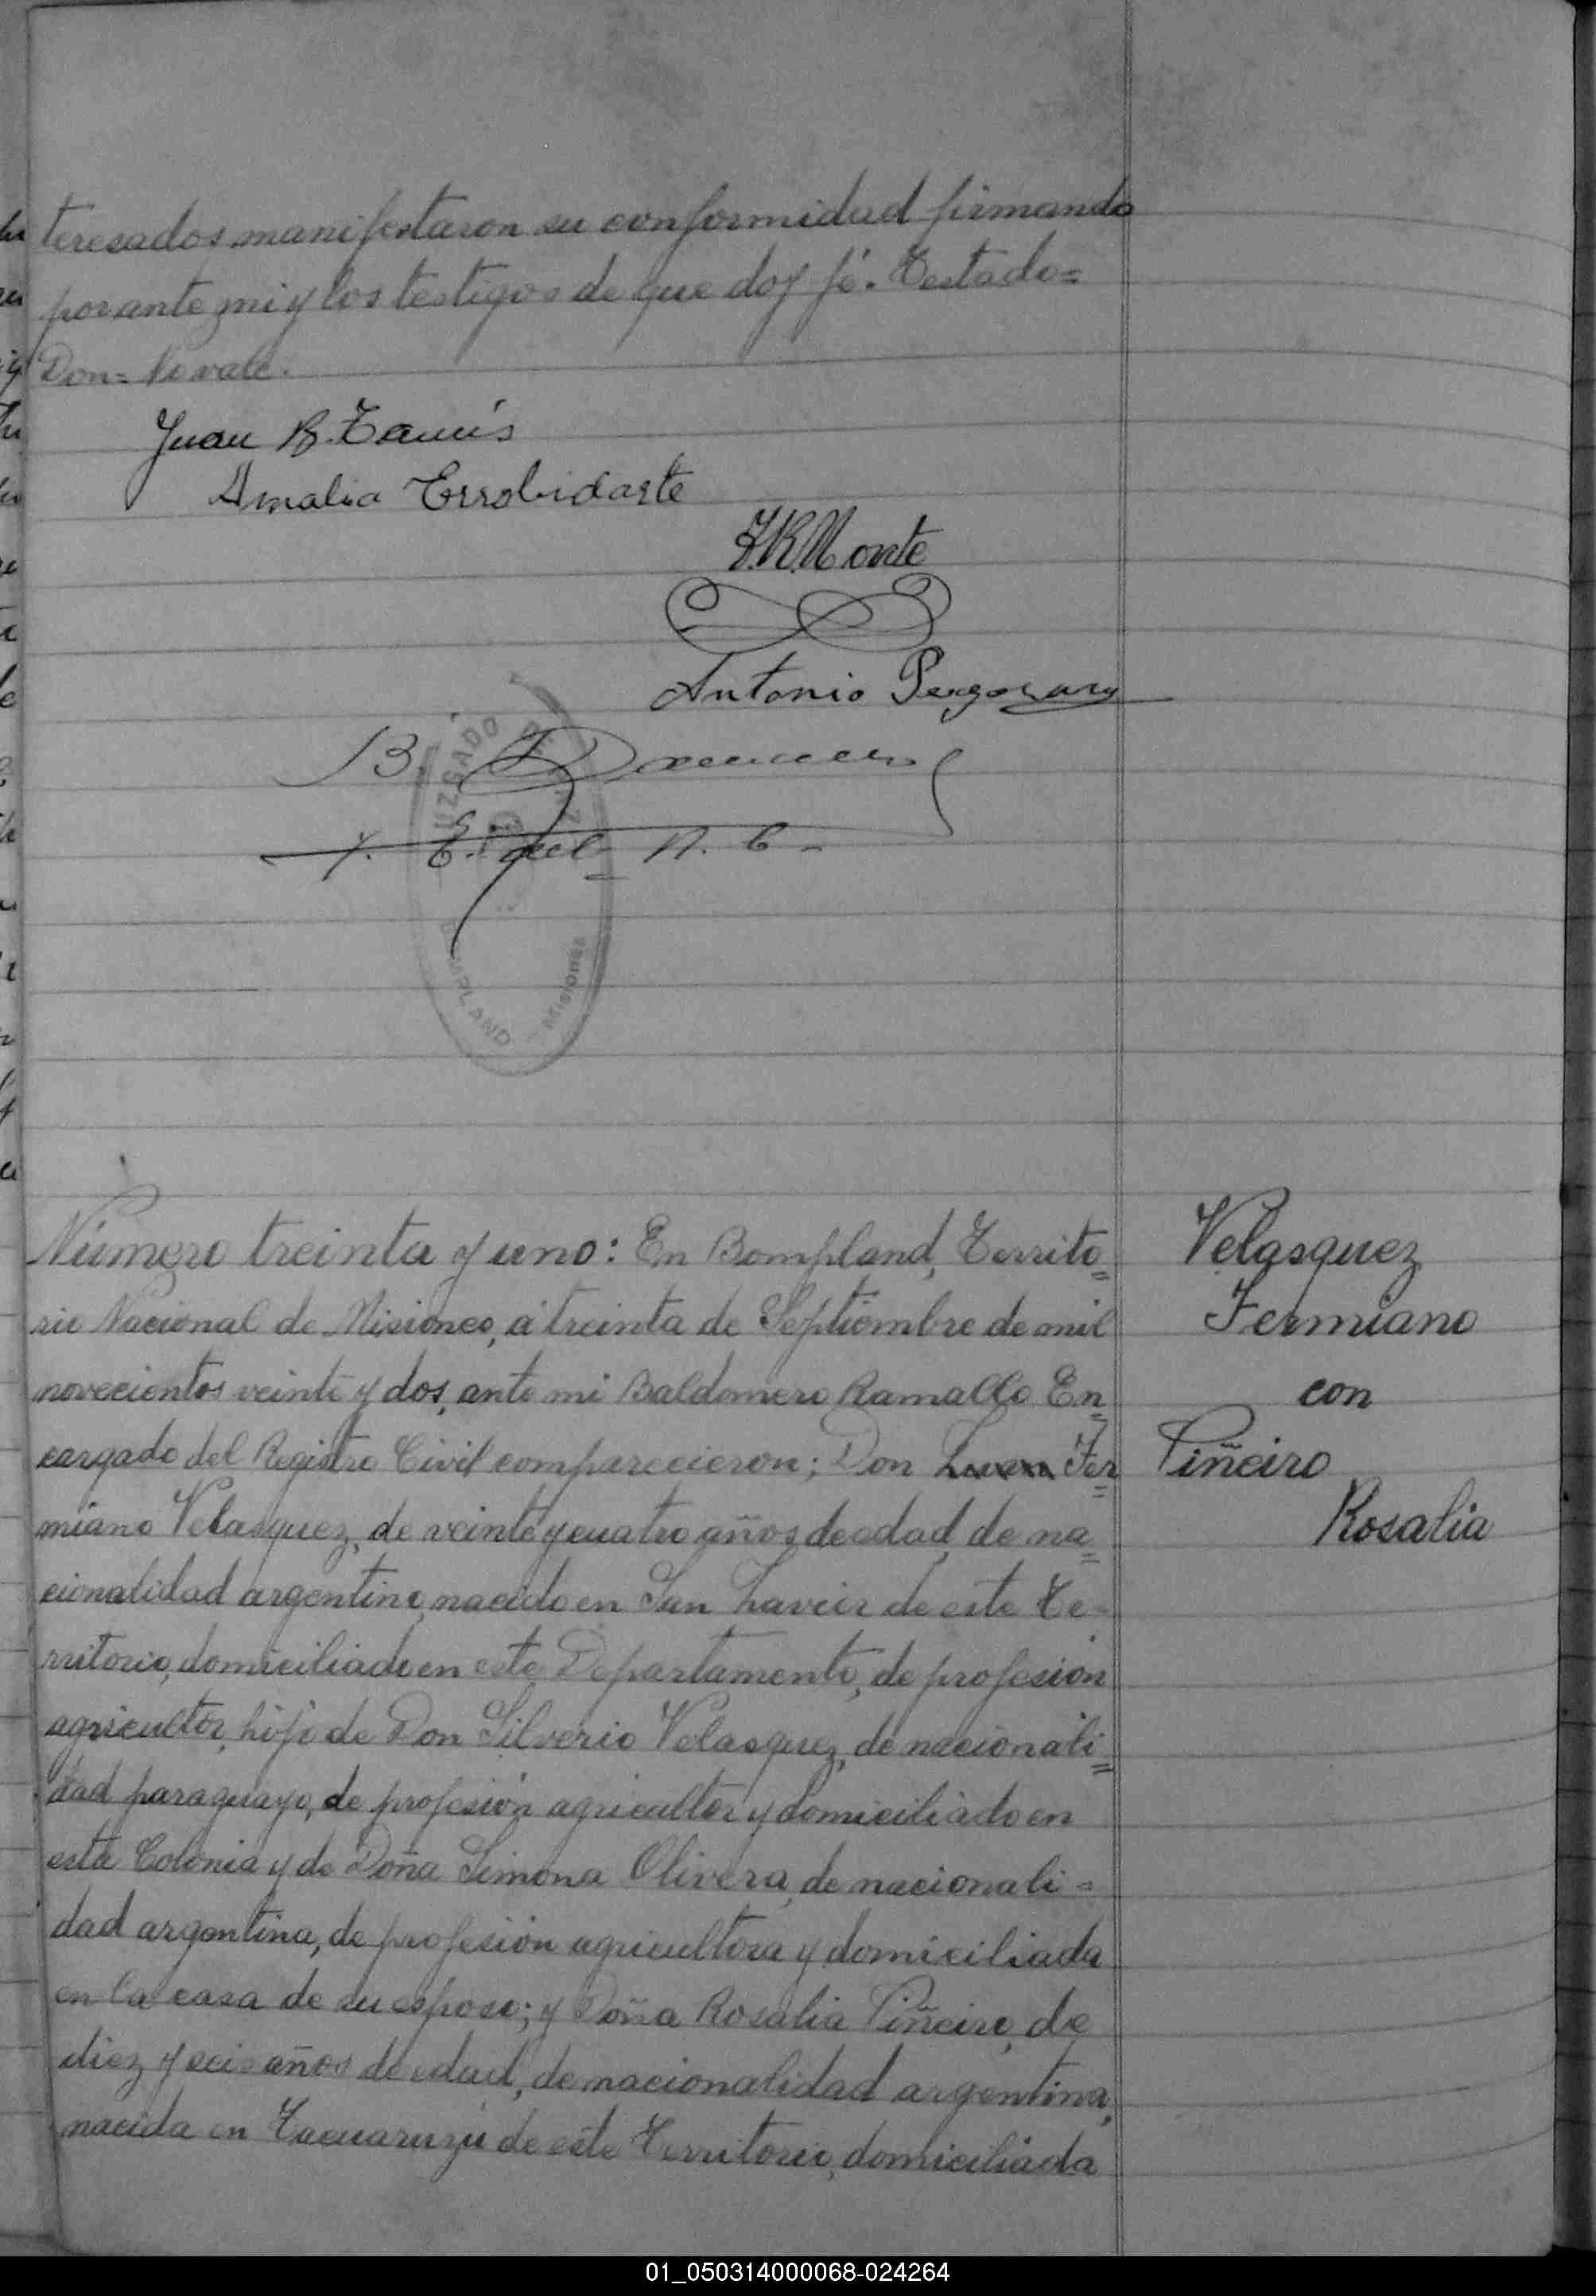 teresados manifestaron su conformidad firmando
por ante mi y los testigos de que doy fé. Testado=
Don= No vale.
Juan B.
Amalia Errobidarte
Monte
Antonio
B.
E. del R. C.
JUZGADO DE PAZ
BOMPLAND - Misiones
Número treinta y uno: En Bompland, Territo=
rio Nacional de Misiones, á treinta de Septiembre de mil
novecientos veinte y dos, ante mi Baldomero Ramallo En=
cargado del Registro Civil comparecieron; Don Juan Fer=
miano Velasquez, de veinte y cuatro años de edad, de na=
cionalidad argentino, nacido en San Javier de este Te-
rritorio, domiciliado en este Departamento, de profesión
agricultor, hijo de Don Silverio Velasquez, de nacionali=
dad paraguayo, de profesión agricultor y domiciliado en
esta Colonia y de Doña Simona Olivera, de nacionali=
dad argentina, de profesión agricultora y domiciliada
en la casa de su esposo; y Doña Rosalia Piñeiro, de
diez y seis años de edad, de nacionalidad argentina,
nacida en Tacuaruzú de este Territorio, domiciliada
Velasquez
Fermiano
con
Piñeiro
Rosalia
01_050314000068-024264